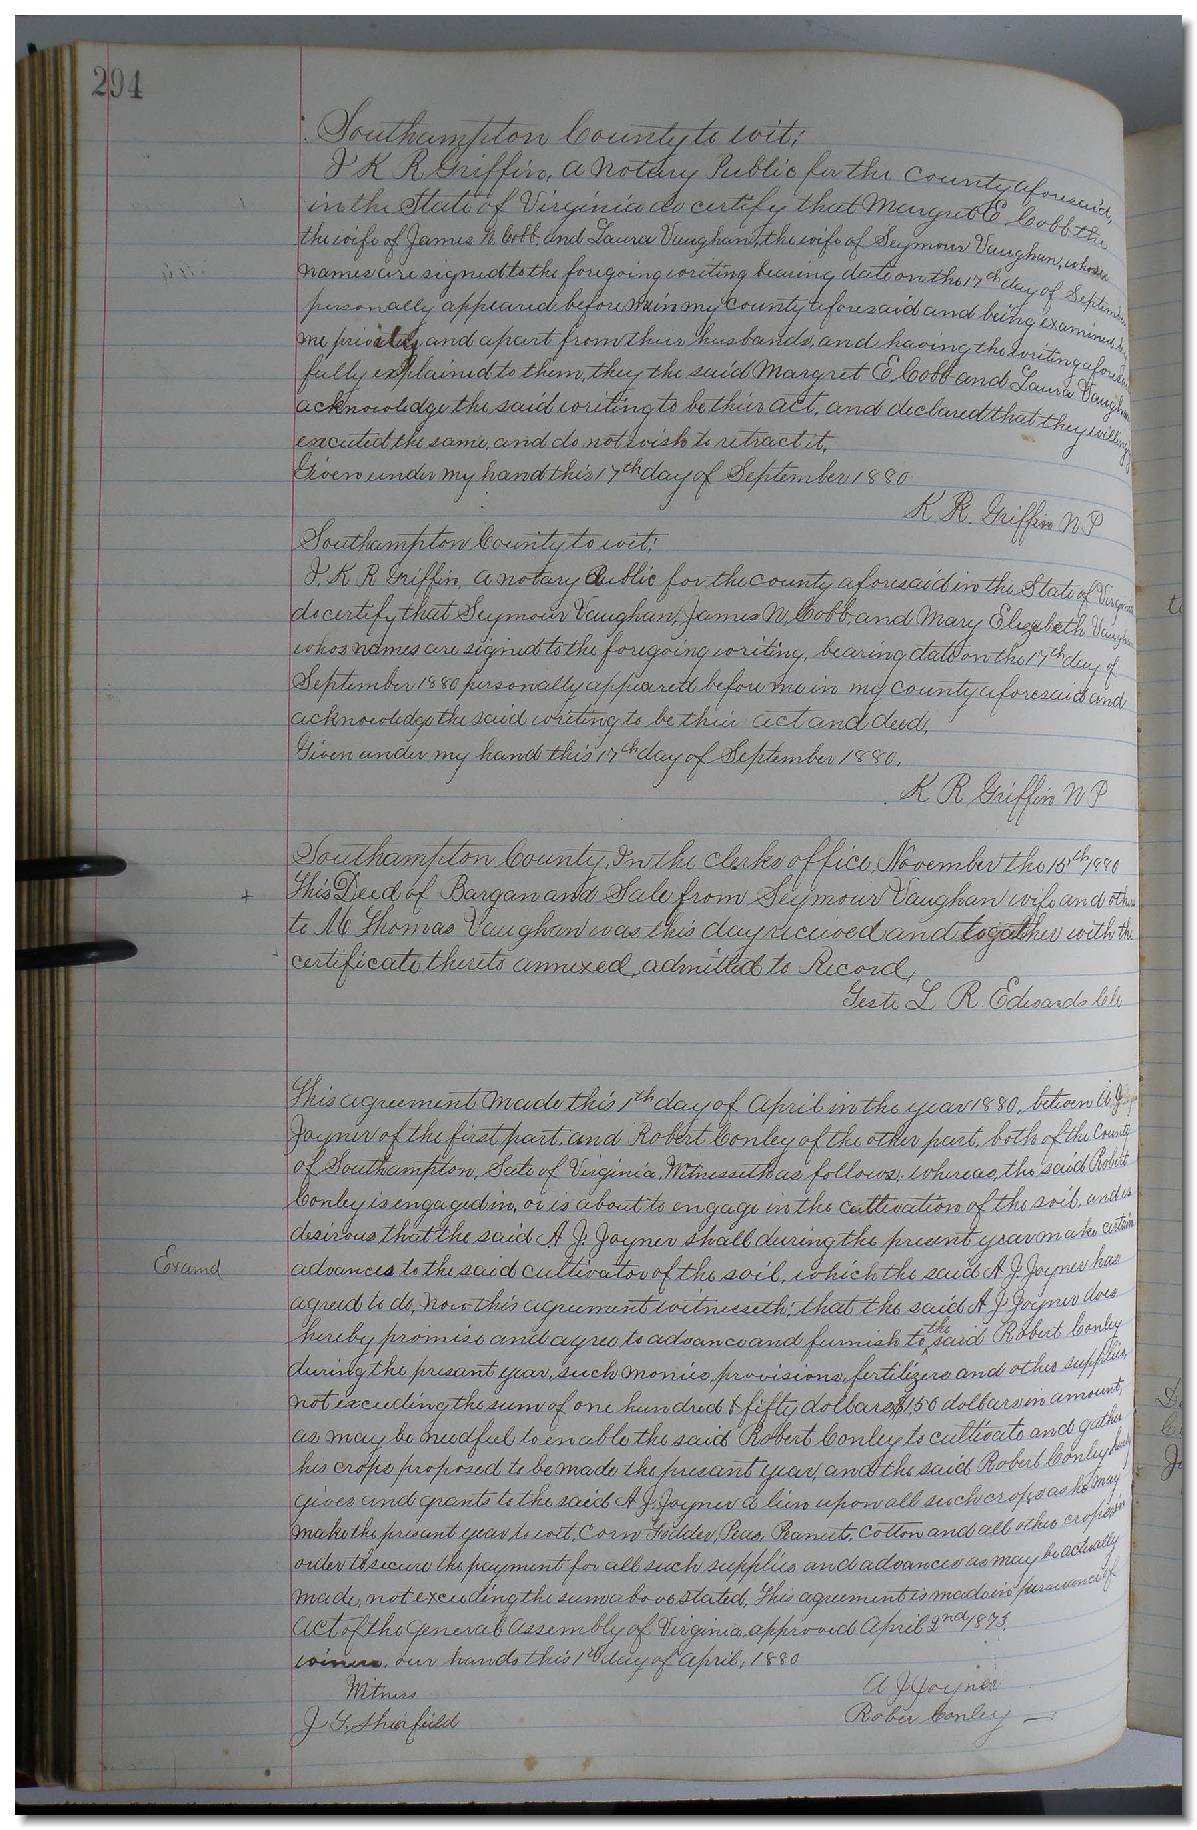 294
Southampton County to wit;
I K R Griffin, a Notary Public for the county aforesaid,
in the State of Virginia do certify that Margret E Cobb the
the wife of James N Cobb, and Laura Vaughan, the wife of Seymour Vaughan, whose
names are signed to the foregoing writing bearing date on the 17th day of September
personally appeared before me in my county aforesaid and being examined by
me privily, and apart from their husbands, and having the writing aforesaid
fully explained to them, they the said Margret E. Cobb and Laura Vaughan
acknowledge the said writing to be thier act, and declared that they willingly
excuted the same, and do not wish to retract it.
Given under my hand this 17th day of September 1880
K R. Griffin N P
Southampton County to wit;
I, K R Griffin, a notary Public for the county aforesaid in the State of Virginia
do certify that Seymour Vaughan, James N. Cobb, and Mary Elizabeth Vaughan
whos names are signed to the foregoing writing, bearing date on the 17th day of
September 1880 personally appeared before me in my county aforesaid and
acknowledge the said writing to be thier act and deed,
Given under my hand this 17th day of September 1880.
K R Griffin N P
Southampton County, In the clerks office, November the 15th 1880
+ This Deed of Bargan and Sale from Seymour Vaughan wife and others
to M Thomas Vaughan was this day recieved and togather with the
certificate thereto annexed, admitted to Record,
Teste L R Edwards Clk
This agreement made this 1th day of April in the year 1880, between A J
Joyner of the first part, and Robert Conley of the other part, both of the County
of Southampton, Sate of Virginia, Witnesseth as follows; whereas, the said Robert
Conley is engaged in, or is about to engage in the cultivation of the soil, and is
desirous that the said A J. Joyner shall during the present year make certain
Examd advances to the said cultivator of the soil, which the said A J Joyner has
agreed to do, now this agreement witnesseth; that the said A J Joyner does
hereby promise and agree to advance and furnish to the said Robert Conley
during the present year, such monies, provisions, fertilizers and other supplies,
not exceeding the sum of one hundred & fifty dollars $150 dollars in amount,
as may be needful to enable the said Robert Conley to cultivate and gather
his crops proposed to be made the present year and the said Robert Conley hereby
gives and grants to the said A J. Joyner a lien upon all such crops as he may
make the present year to wit, Corn Fodder, Peas, Peanut, Cotton and all other crops in
order to secure the payment for all such supplies and advances as may be actually
made, not exceeding the sum above stated, This agreement is made in persuance of
act of the General Assembly of Virginia, approved April 2nd 1873.
our hands this 1th day of April, 1880
Witness A J Joyner
J T. Sherfield Rober Conley